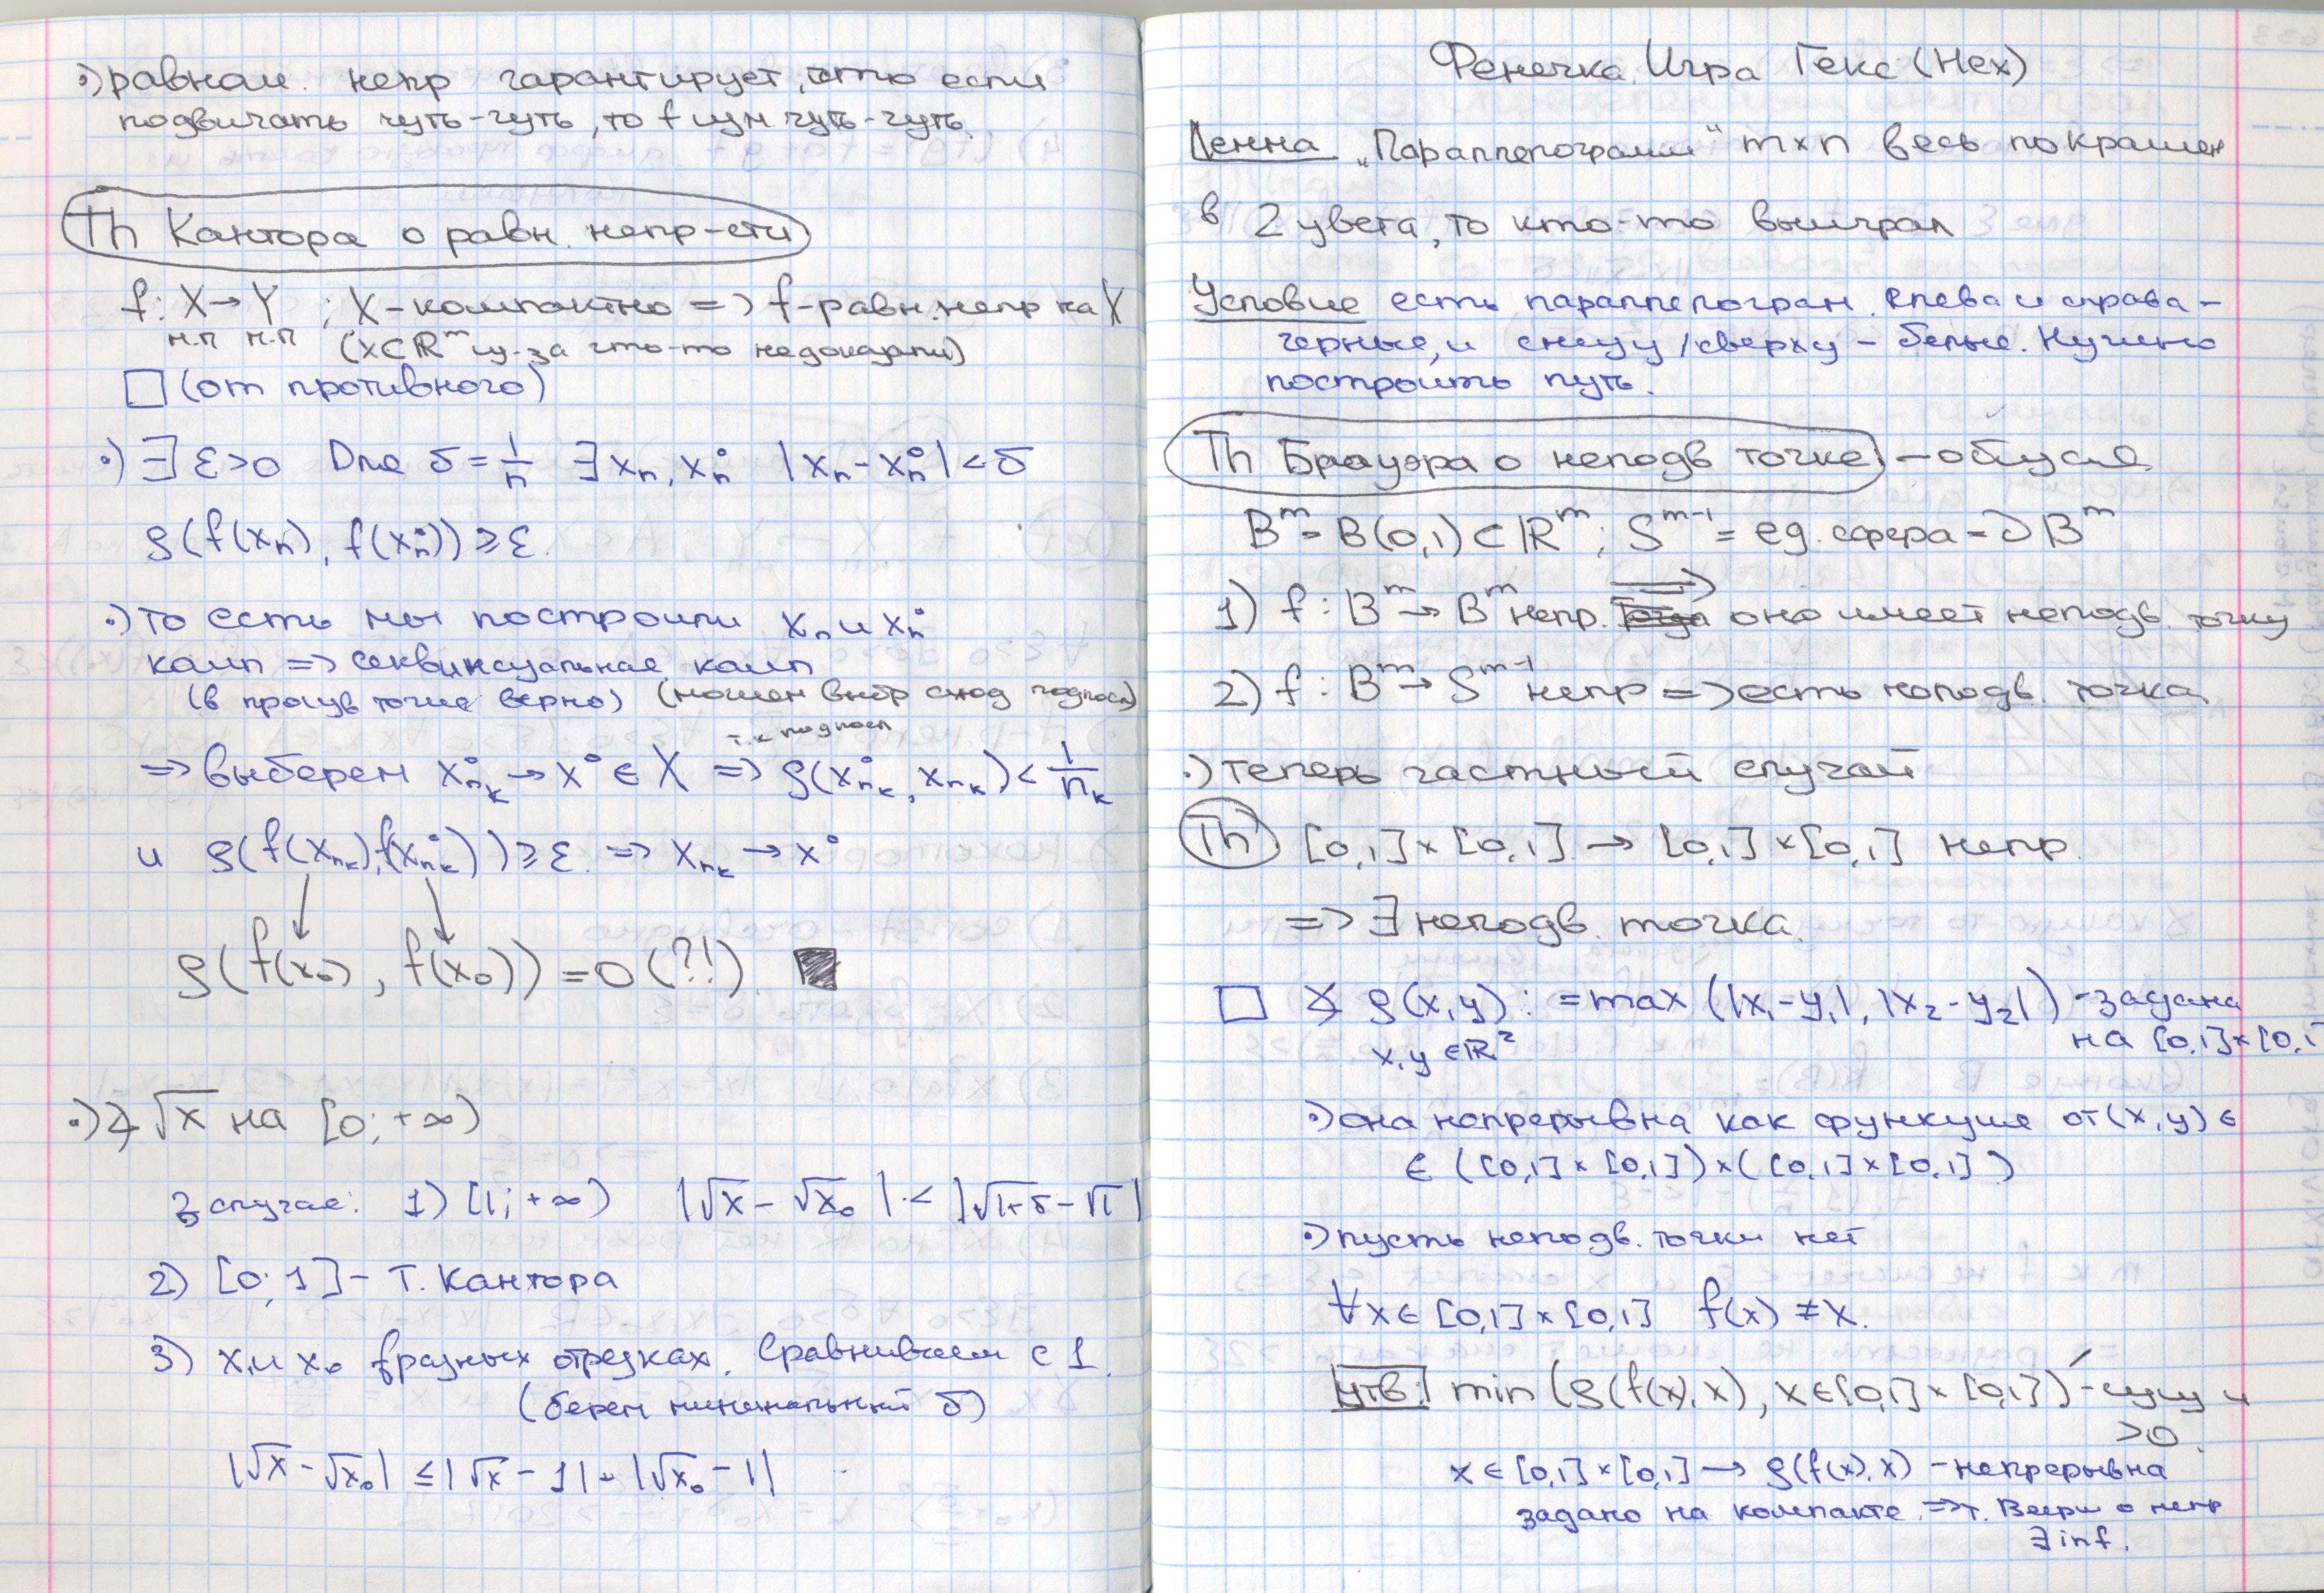 •) равном. непр гарантирует, что если
подвигать чуть-чуть, то f изм чуть-чуть.
Th Кантора о равн. непр-сти
f: X→Y ; X-компактно => f-равн. непр на X
м.п м.п (X⊂ℝᵐ из-за что-то недоказали)
□ (от противного)
•) ∃ ε>0 Для δ = 1/n ∃ xₙ, xₙ° |xₙ - xₙ°| < δ
ρ(f(xₙ), f(xₙ°)) ≥ ε.
•) то есть мы построили xₙ и xₙ°
комп => секвинсуальная комп
(в прошв точне верно) (можем выбр сход подпосл)
т.к подпосл
=> выберем xₙₖ° → x° ∈ X => ρ(xₙₖ°, xₙₖ) < 1/nₖ
и ρ(f(xₙₖ), f(xₙₖ°)) ≥ ε. => xₙₖ → x°
ρ(f(x₀), f(x₀)) = 0 (?!) ■
•) √x на [0; +∞)
3 случае: 1) [1; +∞) |√x - √x₀| < |√1+δ - √1|
2) [0; 1] - Т. Кантора
3) x и x₀ в разных отрезках. Сравниваем с 1.
(берем минимальный δ)
|√x - √x₀| ≤ |√x - 1| + |√x₀ - 1|
Фенечка. Игра Гекс (Hex)
Лемма „Параллелограмм“ m×n весь покрашен
в 2 цвета, то кто-то выиграл
Условие есть параллелограм. слева и справа -
черные, и снизу / сверху - белые. Нужно
построить путь.
Th Брауэра о неподв точке - общая
Bᵐ = B(0,1) ⊂ ℝᵐ; Sᵐ⁻¹ = ед. сфера = ∂Bᵐ
1) f: Bᵐ → Bᵐ непр. => оно имеет неподв. точку
2) f: Bᵐ → Sᵐ⁻¹ непр => есть неподв. точка.
•) теперь частный случай
Th [0,1] × [0,1] → [0,1] × [0,1] непр.
=> ∃ неподв. точка.
□ ρ(x,y) := max (|x₁-y₁|, |x₂-y₂|) - задана
x,y ∈ ℝ² на [0,1] × [0,1
•) она непрерывна как функция от (x,y) ∈
∈ ([0,1] × [0,1]) × ([0,1] × [0,1])
•) пусть неподв. точки нет
∀x ∈ [0,1] × [0,1] f(x) ≠ x.
Утв. min (ρ(f(x), x), x ∈ [0,1] × [0,1]) - сущ и
>0.
x ∈ [0,1] × [0,1] → ρ(f(x), x) - непрерывна
задано на компакте. => т. Веерш о непр
∃ inf.